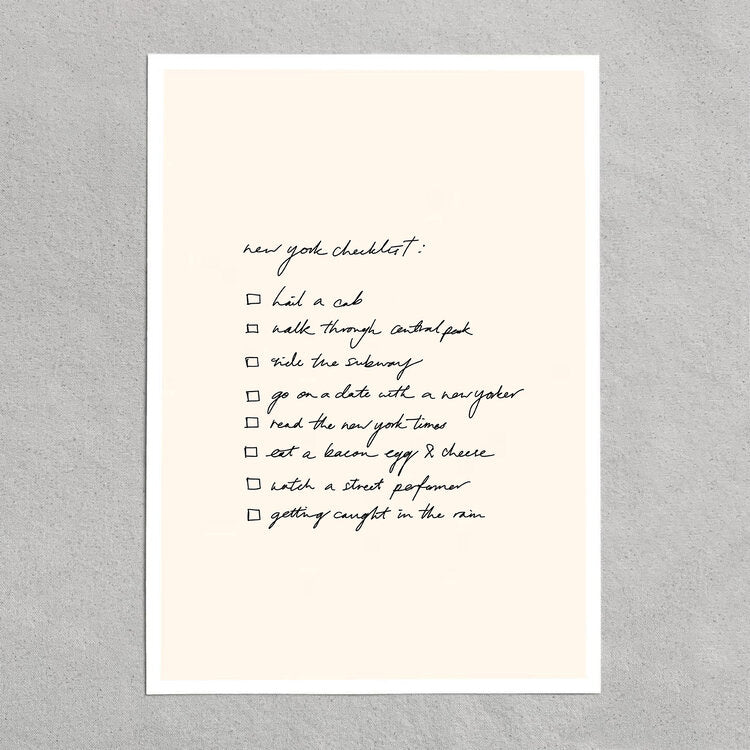 new york checklist:
☐ hail a cab
☐ walk through central park
☐ ride the subway
☐ go on a date with a new yorker
☐ read the new york times
☐ eat a bacon egg & cheese
☐ watch a street performer
☐ getting caught in the rain